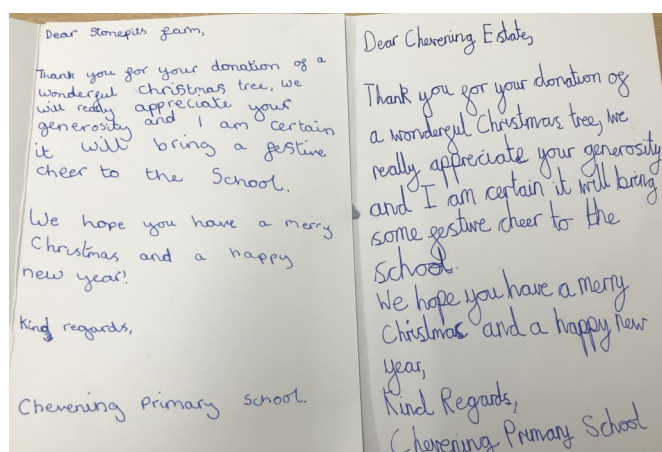 Dear Stonepits farm,
Thank you for your donation of a
wonderful christmas tree, we
will really appreciate your
generosity and I am certain
it will bring a festive
cheer to the School.
We hope you have a merry
Christmas and a happy
new year!
Kind regards,
Chevening Primary School.
Dear Chevening Estate,
Thank you for your donation of
a wonderful Christmas tree, we
really appreciate your generosity
and I am certain it will bring
some festive cheer to the
school.
We hope you have a merry
Christmas and a happy new
year,
Kind Regards,
Chevening Primary School